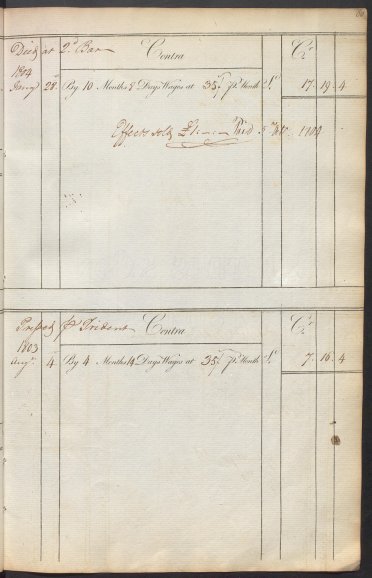 Died at 2d Bar Contra Cr
1804
Jany 28 By 10 Months 8 Days Wages at 35/ pr. Month £ 17. 19. 4
Effects sold £1.-.- Paid 5 1804
Pressed pr Trident Contra Cr
1803
Augt 4 By 4 Months 14 Days Wages at 35/ pr. Month £ 7. 16. 4